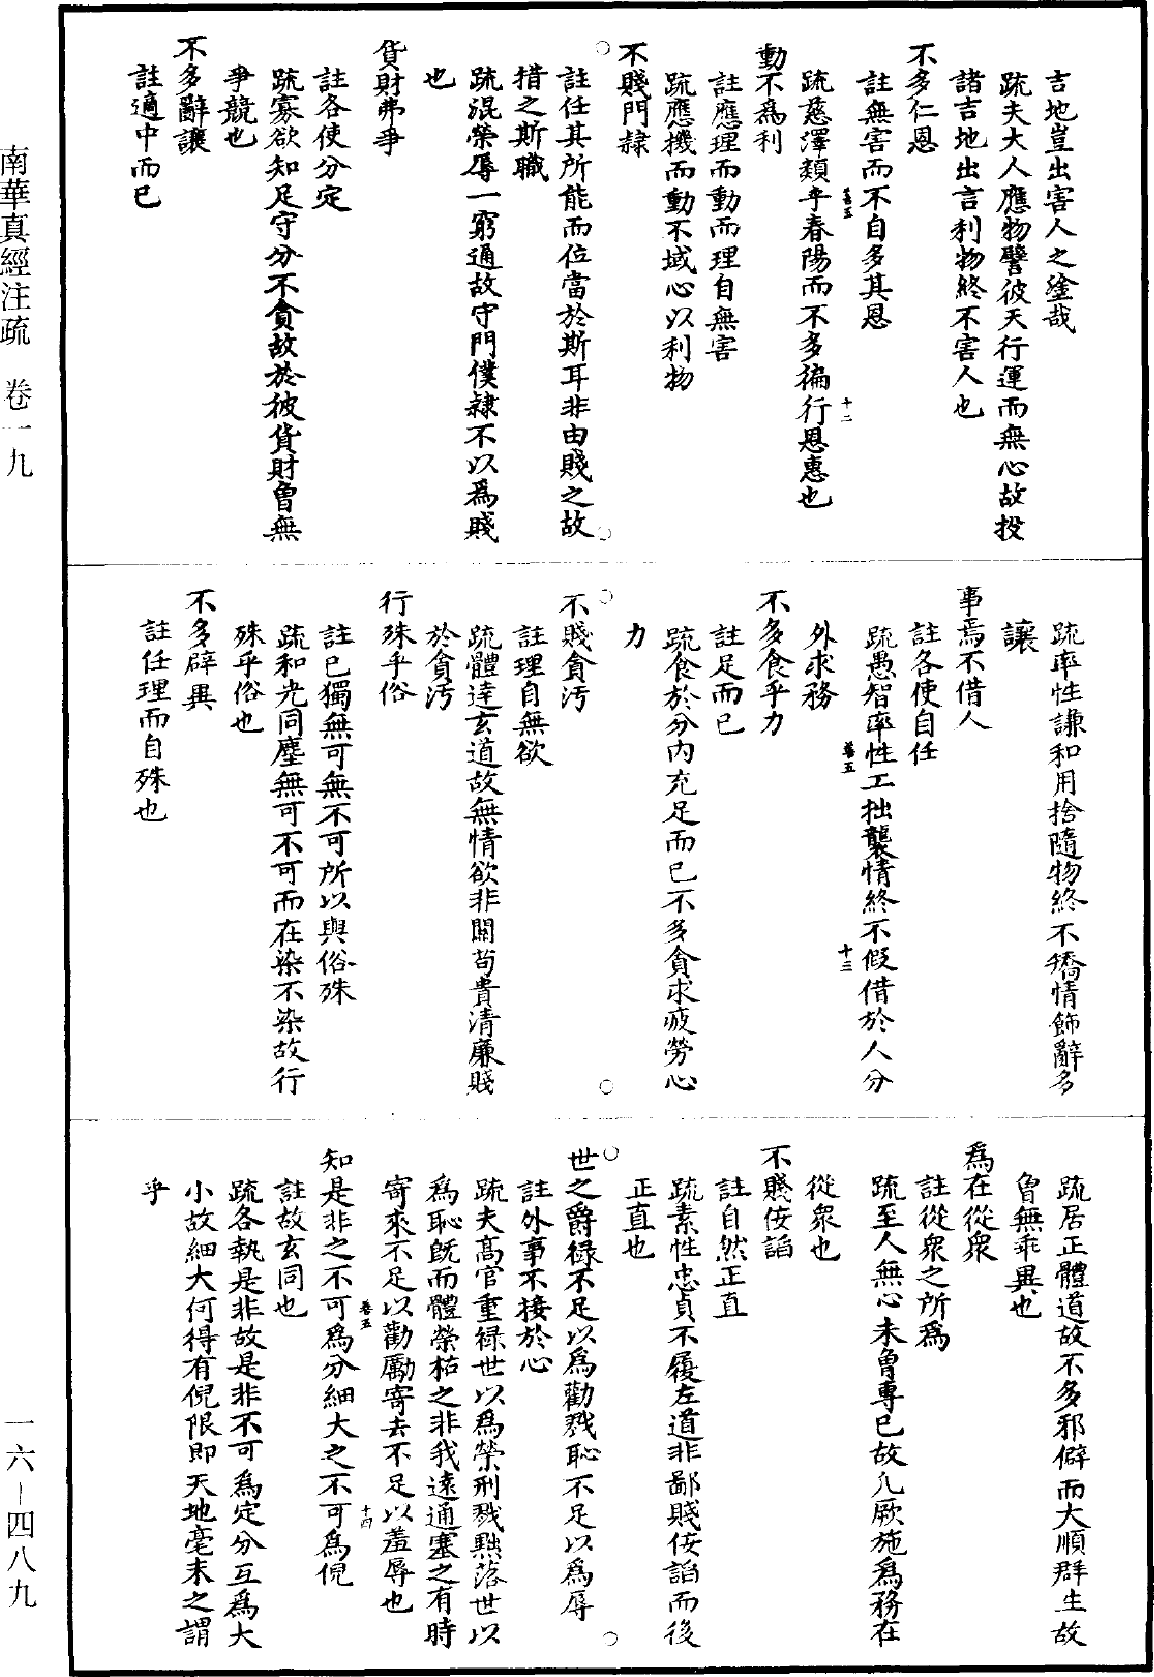 吉地豈出害人之塗哉
疏夫大人應物譬彼天行運而無心故投
諸吉地出言利物終不害人也
不多仁恩
註無害而不自多其恩
卷五
十二
疏慈澤類乎春陽而不多徧行恩惠也
動不爲利
註應理而動而理自無害
疏應機而動不域心以利物
不賤門隸
註任其所能而位當於斯耳非由賤之故
措之斯職
疏混榮辱一窮通故守門僕隸不以爲賤
也
貨財弗爭
註各使分定
疏寡欲知足守分不貪故於彼貨財曾無
爭競也
不多辭讓
註適中而已
疏率性謙和用捨隨物終不矯情飾辭多
讓
事焉不借人
註各使自任
疏愚智率性工拙襲情終不假借於人分
卷五
十三
外求務
不多食乎力
註足而已
疏食於分內充足而已不多貪求疲勞心
力
不賤貪污
註理自無欲
疏體達玄道故無情欲非關苟貴清廉賤
於貪污
行殊乎俗
註已獨無可無不可所以與俗殊
疏和光同塵無可不可而在染不染故行
殊乎俗也
不多辟異
註任理而自殊也
疏居正體道故不多邪僻而大順群生故
曾無乖異也
爲在從衆
註從衆之所爲
疏至人無心未曾專已故凡厥施爲務在
從衆也
不賤佞諂
註自然正直
疏素性忠貞不履左道非鄙賤佞諂而後
正直也
世之爵祿不足以爲勸戮恥不足以爲辱
註外事不接於心
疏夫高官重祿世以爲榮刑戮黜落世以
爲恥既而體榮枯之非我達通塞之有時
寄來不足以勸勵寄去不足以羞辱也
卷五
十四
知是非之不可爲分細大之不可爲倪
註故玄同也
疏各執是非故是非不可爲定分互爲大
小故細大何得有倪限即天地毫末之謂
乎
南華真經注疏 卷一九
一六－四八九